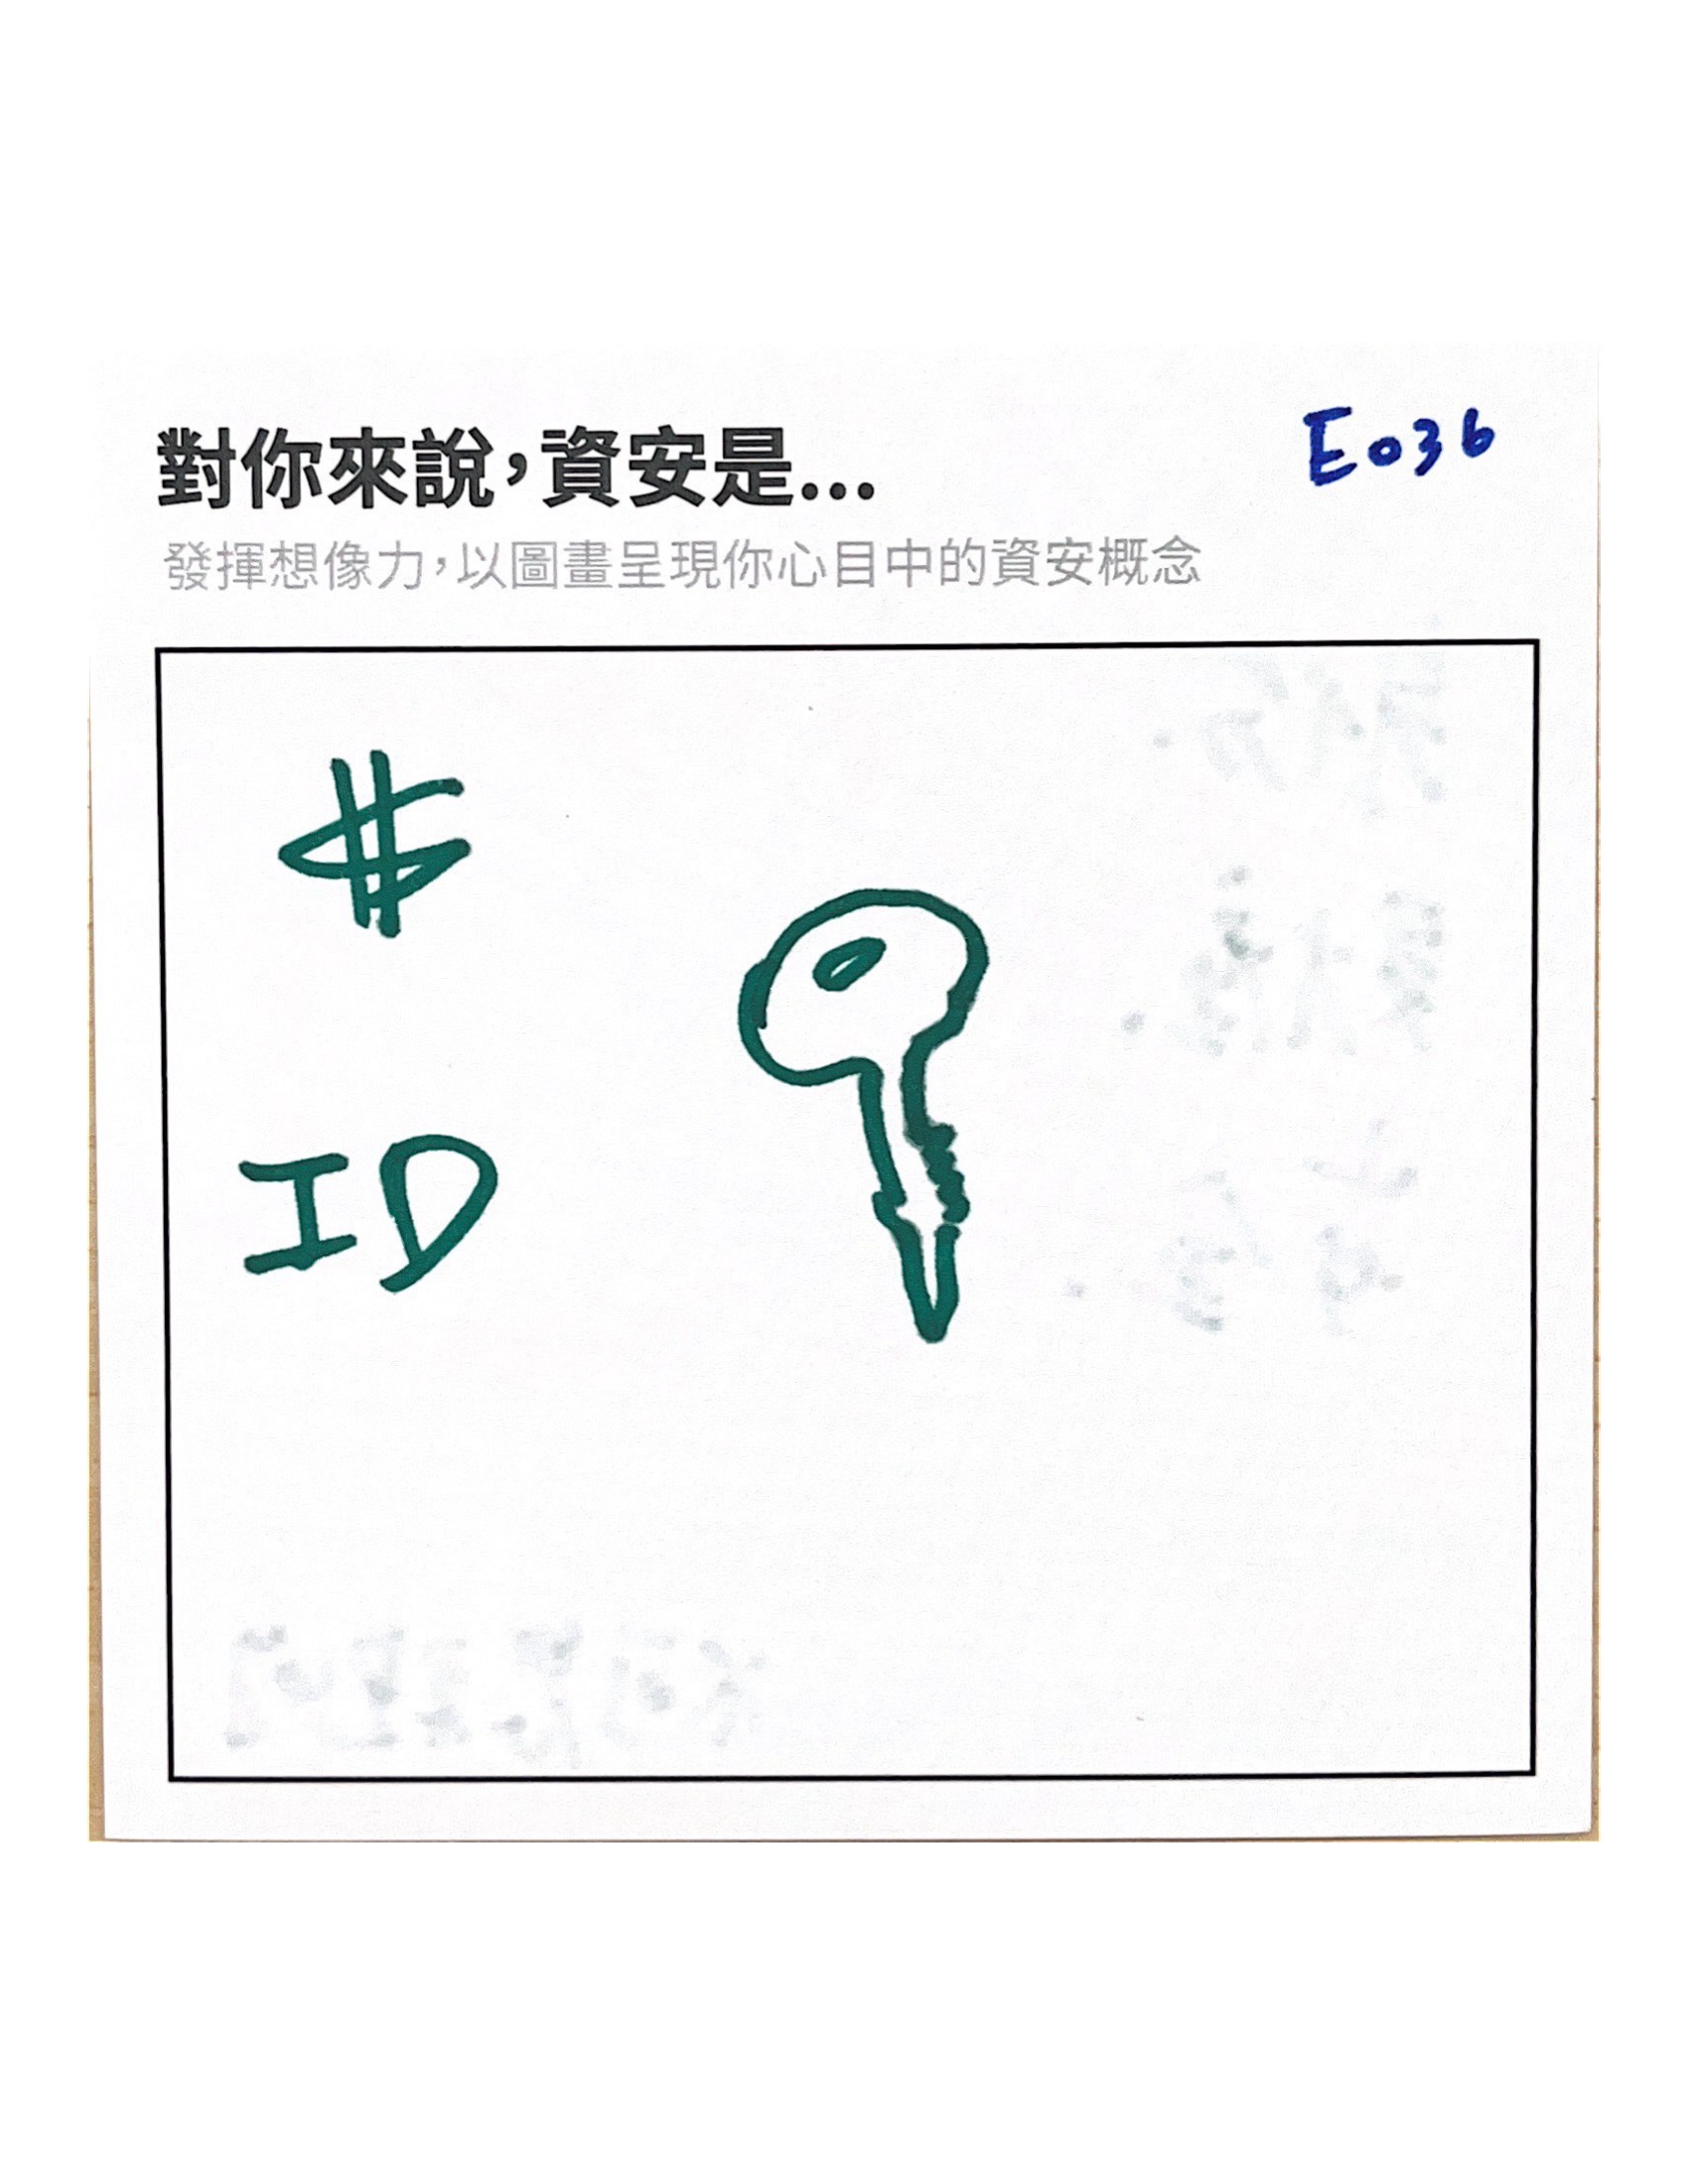 對你來說，資安是...
E036
發揮想像力，以圖畫呈現你心目中的資安概念
$
ID